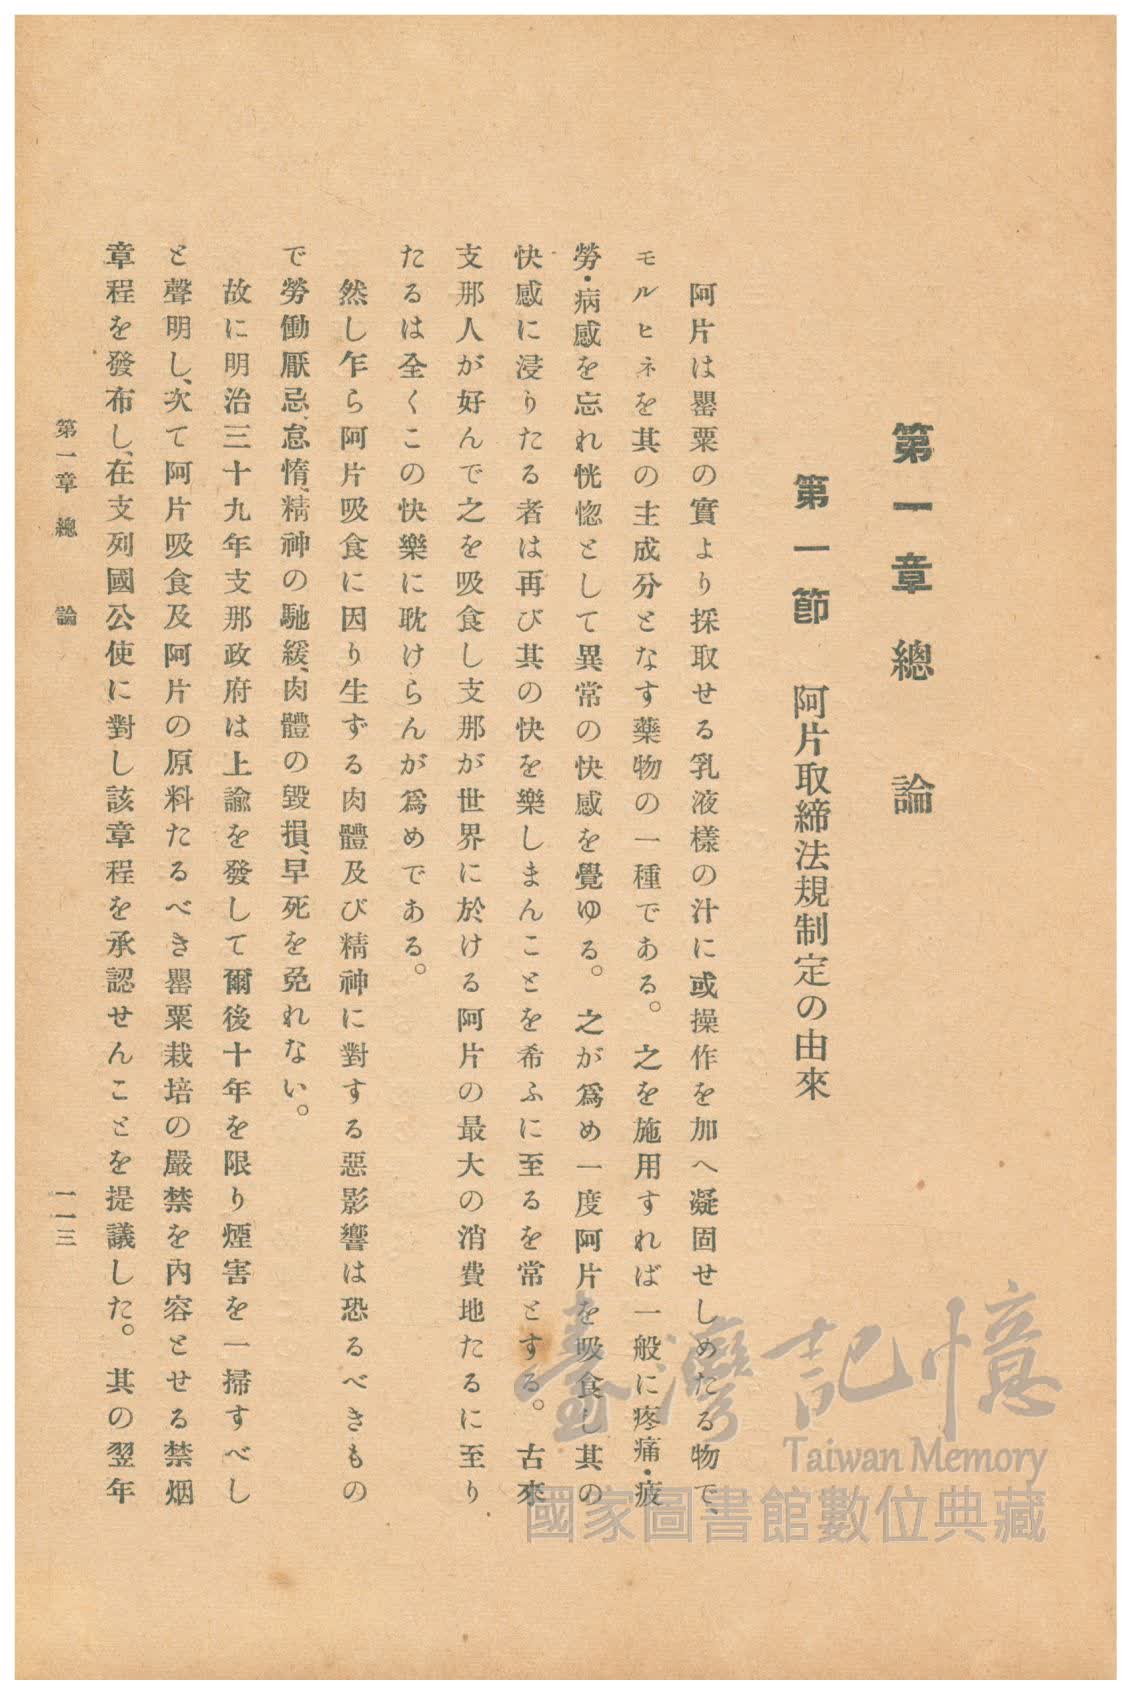 第一章 總論
第一節 阿片取締法規制定の由來
阿片は罌粟の實より採取せる乳液樣の汁に或操作を加へ凝固せしめたる物で、
モルヒネを其の主成分となす藥物の一種である。之を施用すれば一般に疼痛・疲
勞・病感を忘れ恍惚として異常の快感を覺ゆる。之が爲め一度阿片を吸食し其の
快感に浸りたる者は再び其の快を樂しまんことを希ふに至るを常とする。古來
支那人が好んで之を吸食し支那が世界に於ける阿片の最大の消費地たるに至り
たるは全くこの快樂に耽けらんが爲めである。
然し乍ら阿片吸食に因り生ずる肉體及び精神に對する惡影響は恐るべきもの
で勞働厭忌、怠惰、精神の馳緩、肉體の毀損、早死を免れない。
故に明治三十九年支那政府は上諭を發して爾後十年を限り煙害を一掃すべし
と聲明し、次て阿片吸食及阿片の原料たるべき罌粟栽培の嚴禁を內容とせる禁烟
章程を發布し、在支列國公使に對し該章程を承認せんことを提議した。其の翌年
第一章 總論
一一三
臺灣記憶
Taiwan Memory
國家圖書館數位典藏